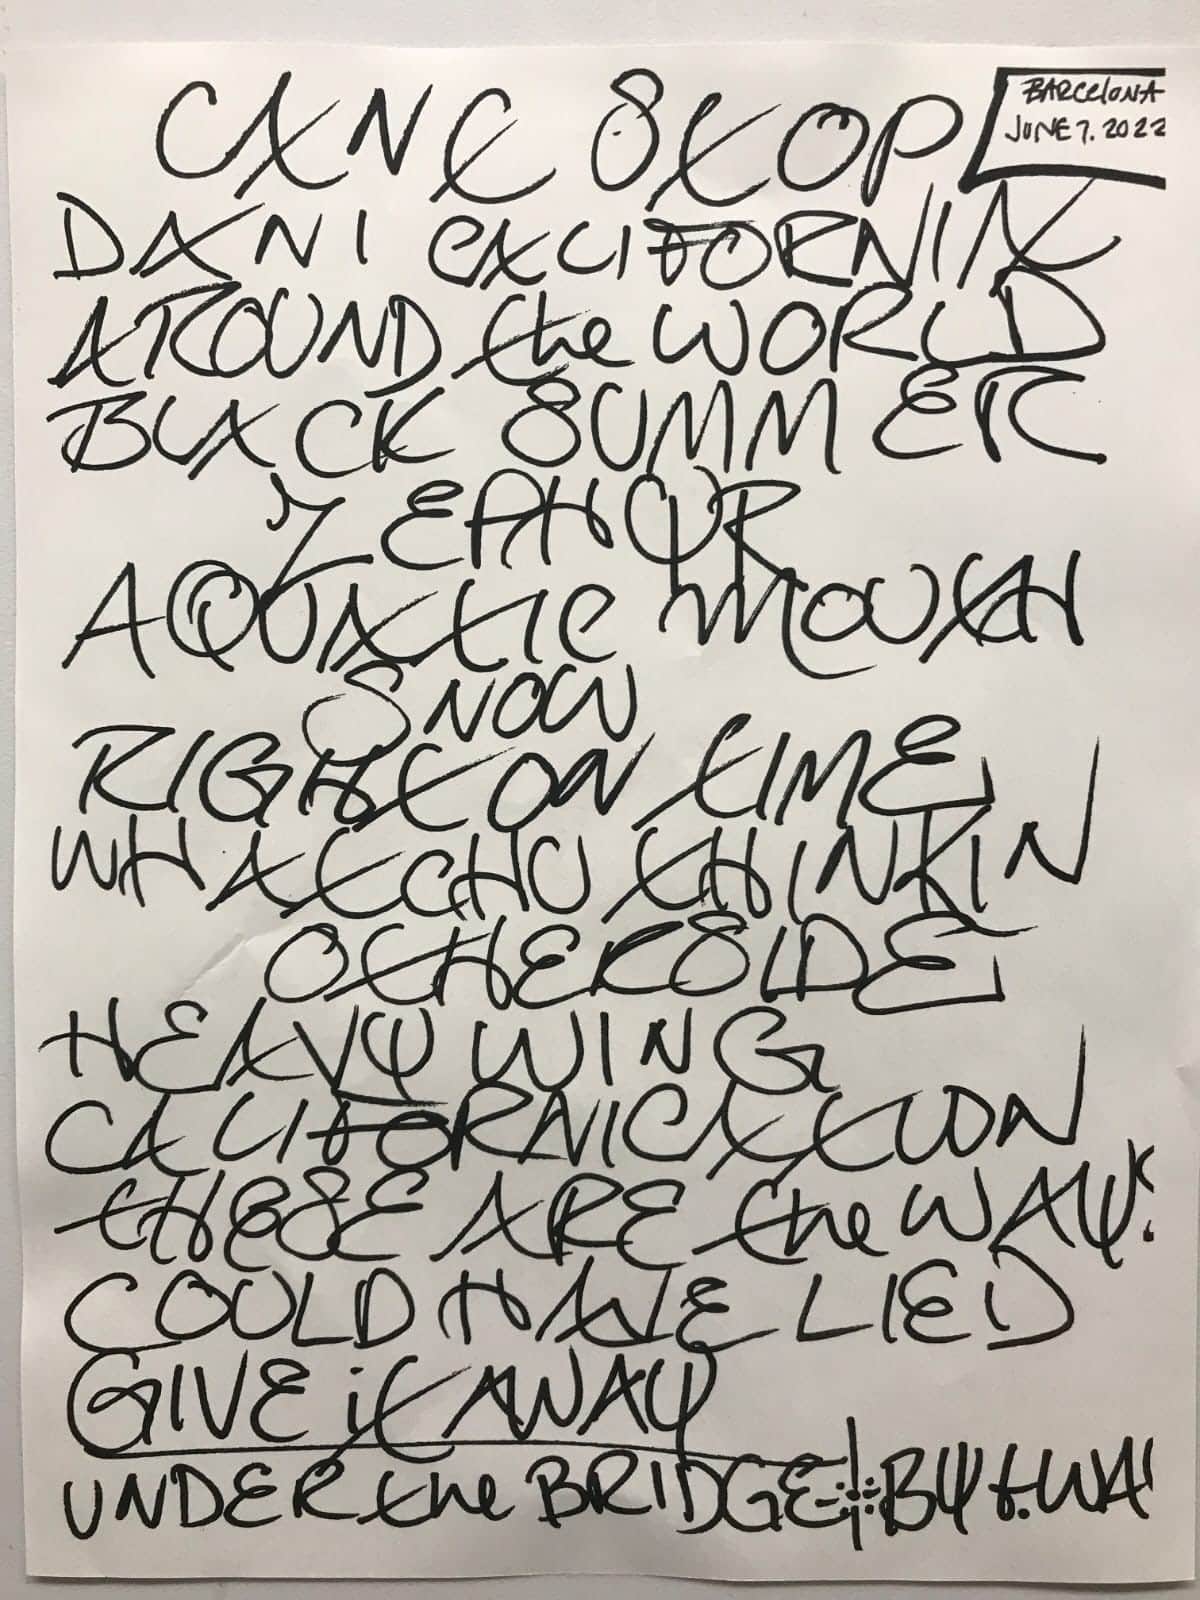 CANT STOP
BARCELONA
JUNE 7. 2022
DANI CALIFORNIA
AROUND the WORLD
BLACK SUMMER
ZEPHYR
AQUATIC MOUTH
SNOW
RIGHT ON TIME
WHATCHU THINKIN
OTHERSIDE
HEAVY WING
CALIFORNICATION
THESE ARE the WAYS
COULD HAVE LIED
GIVE iT AWAY
UNDER the BRIDGE BY t. WA